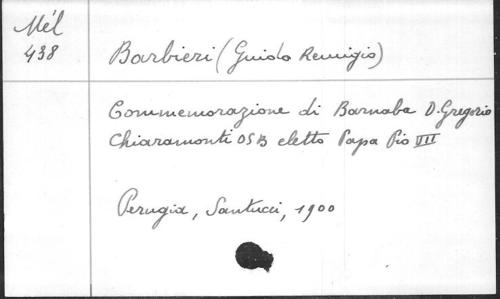 Mél
438
Barbieri (Guido Remigio)
Commemorazione di Barnaba D. Gregorio
Chiaramonti OSB eletto Papa Pio VII
Perugia, Santucci, 1900